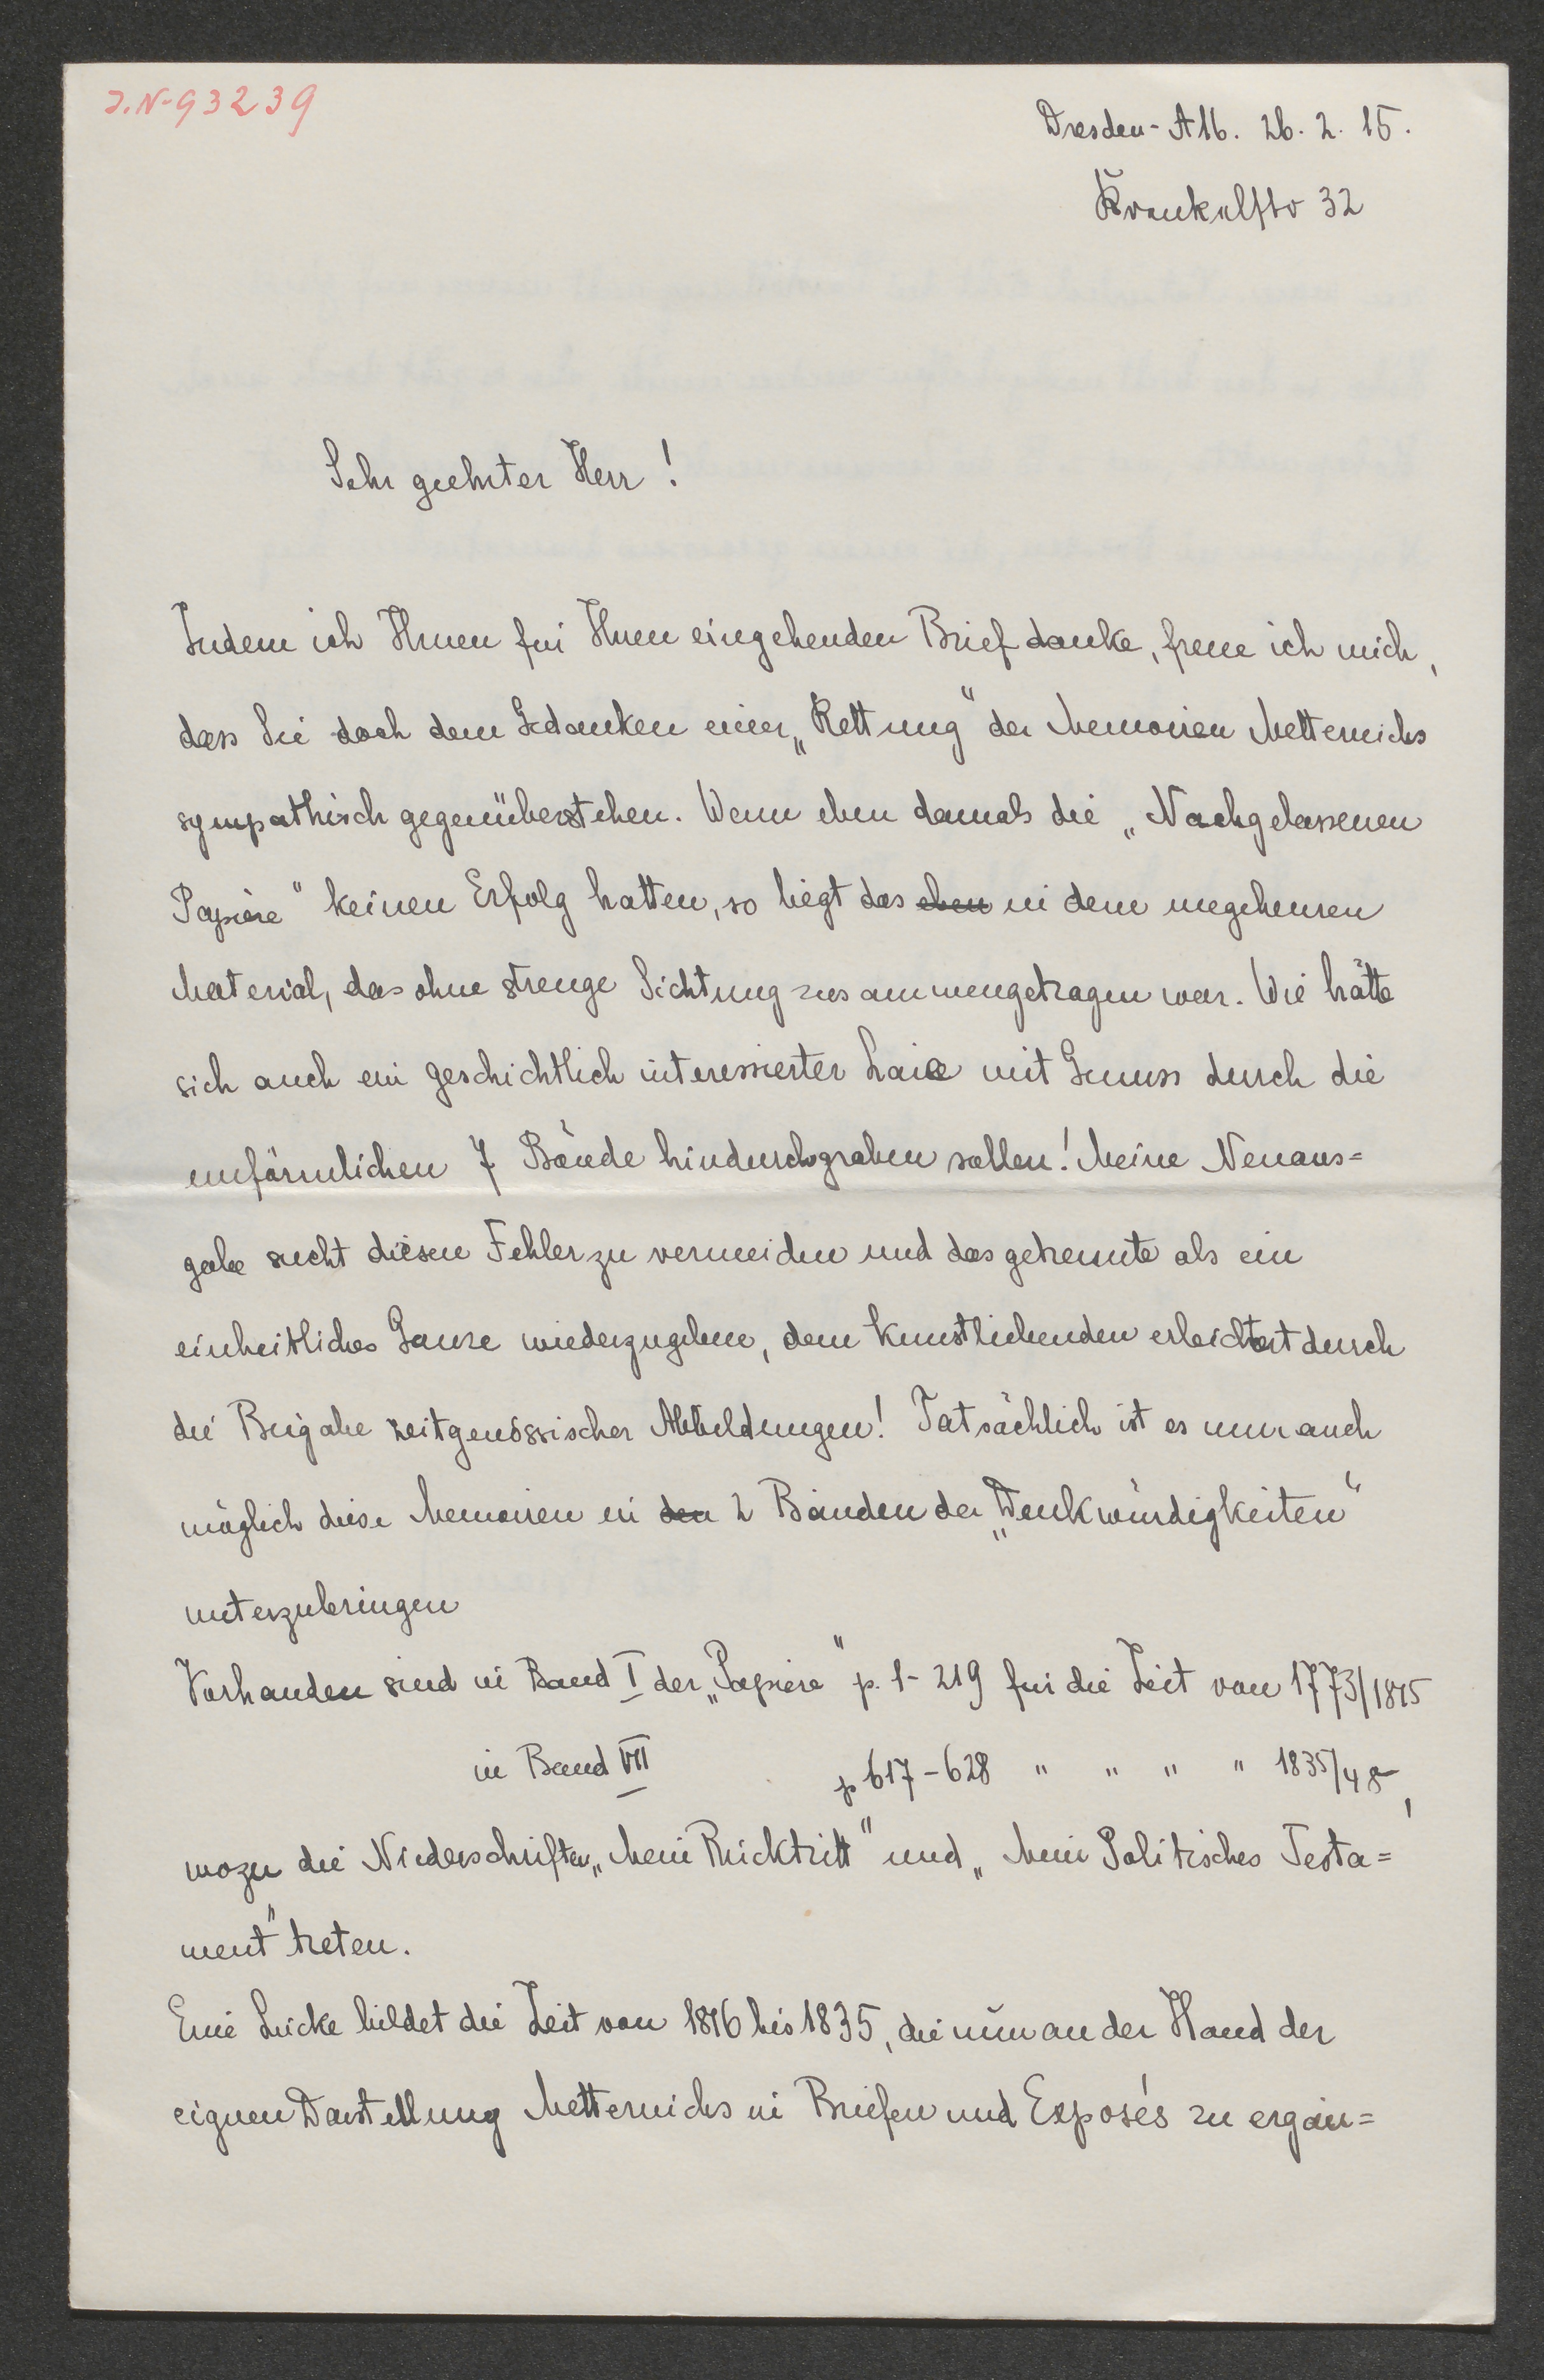 J. N- 93239
Dresden-A16. 26. 2. 15.
32
Sehr geehrter Herr!
Indem ich Ihnen für Ihren eingehenden Brief danke, freue ich mich,
dass Sie doch dem Gedanken einer „Rettung“ der Memoiren Metternichs
sympathisch gegenüberstehen. Wenn eben damals die „Nachgelassenen
Papiere“ keinen Erfolg hatten, so liegt das eben in dem ungeheuren
Material, das ohne strenge Sichtung zusammengetragen war. Wie hätte
sich auch ein geschichtlich interessierter Laie mit Genuss durch die
unförmlichen 7 Bände hindurchgraben sollen! Meine Neuaus=
gabe sucht diesen Fehler zu vermeiden und das getrennte als ein
einheitliches Ganze wiederzugeben, dem Kunstliebenden erleichtert durch
die Beigabe zeitgenössischer Abbildungen! Tatsächlich ist es nun auch
möglich diese Memoiren in den 2 Bänden der „Denkwürdigkeiten“
unterzubringen
Vorhanden sind in Band I der „Papiere“ p. 1-219 für die Zeit von 1773/1815
in Band VII p 617-628 " " " " 1835/48,
wozu die Niederschriften „Mein Rücktritt“ und „Mein Politisches Testa=
ment“ treten.
Eine Lücke bildet die Zeit von 1816 bis 1835, die nun an der Hand der
eignen Darstellung Metternichs in Briefen und Exposés zu ergän=